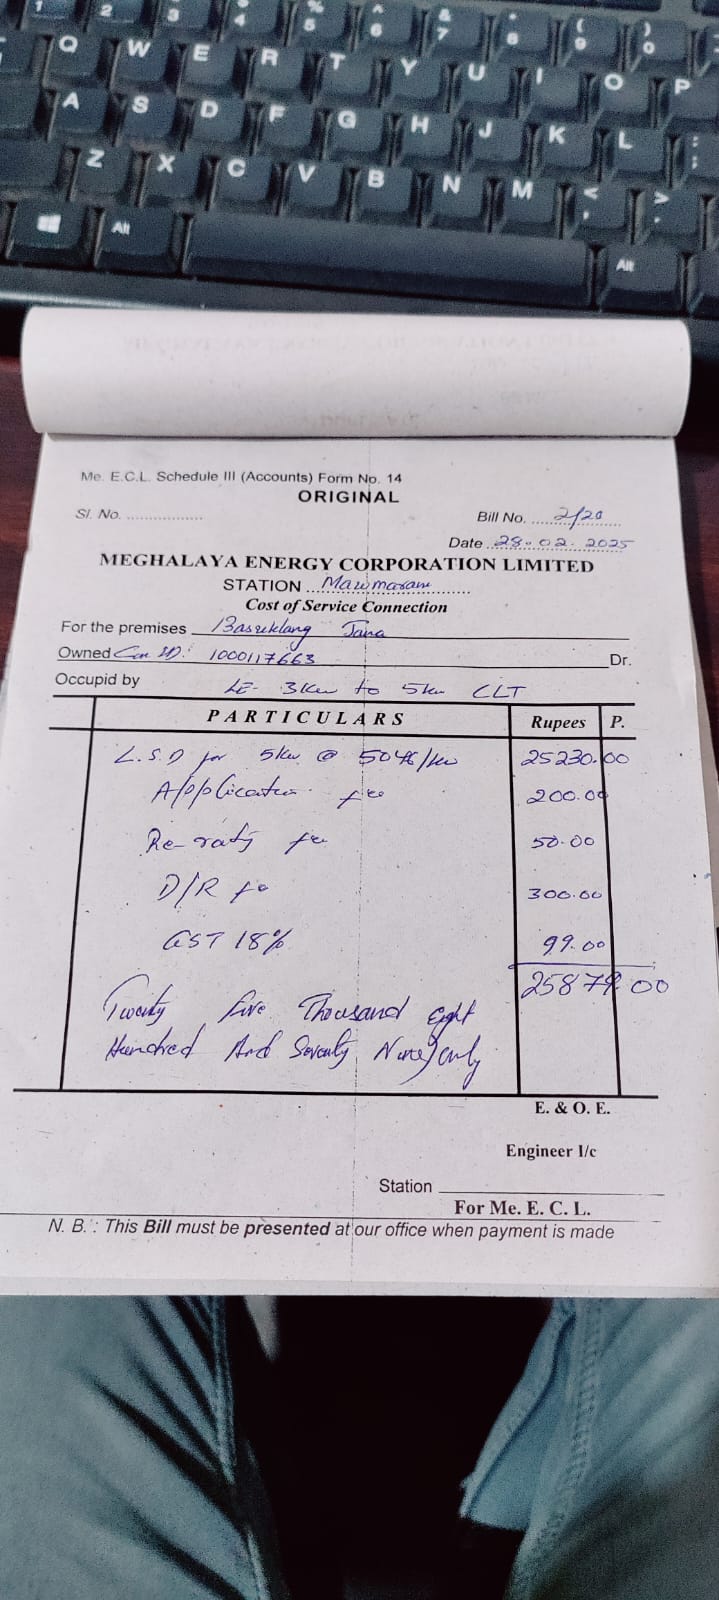 1 2 3 4 5 6 7 8 9 0
% ^ & * ( )
Q W E R T Y U I O P
A S D F G H J K L : ;
Z X C V B N M < , > .
Alt Alt
Me. E.C.L. Schedule III (Accounts) Form No. 14
ORIGINAL
Sl. No. .................... Bill No. 2/20
Date 28.02.2025
MEGHALAYA ENERGY CORPORATION LIMITED
STATION
Cost of Service Connection
For the premises
Owned Con ID: 1000117663 Dr.
Occupid by LE- 3kw to 5kw CLT
PARTICULARS Rupees P.
L.S.D for 5kw @ 5046/kw 25230.00
Application fee 200.00
Re-rating fee 50.00
D/R fe 300.00
GST 18% 99.00
25879.00
Twenty five Thousand Eight
Hundred And Seventy Nine) only
E. & O. E.
Engineer I/c
Station
For Me. E. C. L.
N. B. : This Bill must be presented at our office when payment is made